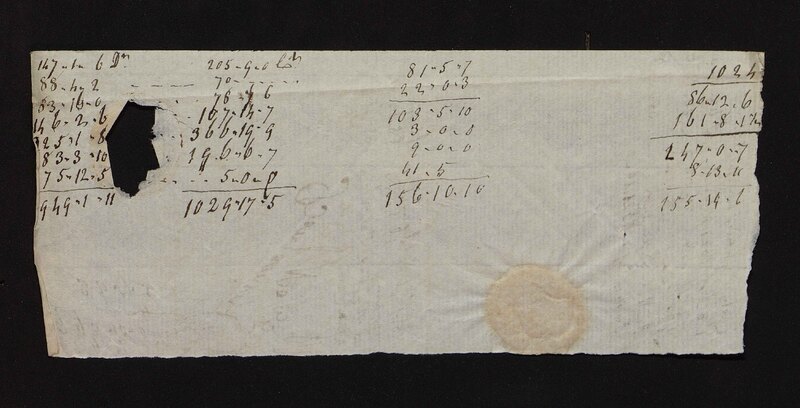 147-1-6 Dr
88-4-2
83-10-0
146-2-6
225-1-8
83-3-10
75-12-5
949-1-11
205-9-0
70
78-1-6
107-14-7
366-19-9
196-0-7
5-0-0
1029-17-5
81-5-7
22-0-3
103-5-10
3-0-0
9-0-0
41-5
156-10-10
1024
86-12-6
161-8-1
247-0-7
8-13-11
155-14-6